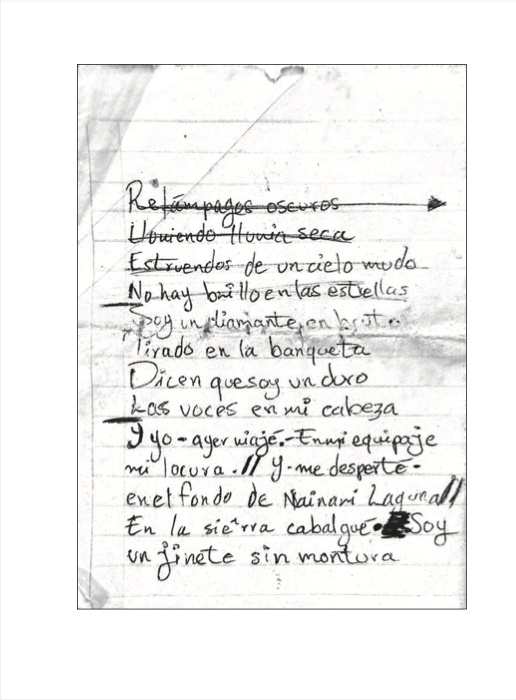 Relámpagos oscuros
Lloviendo lluvia seca
Estruendos de un cielo mudo
No hay brillo en las estrellas
Soy un diamante en bruto
Tirado en la banqueta
Dicen que soy un duro
Las voces en mi cabeza
Y yo - ayer viajé.- En mi equipaje
mi locura.// Y-me desperté-
en el fondo de Nainari Laguna//
En la sierra cabalgué. Soy
un jinete sin montura